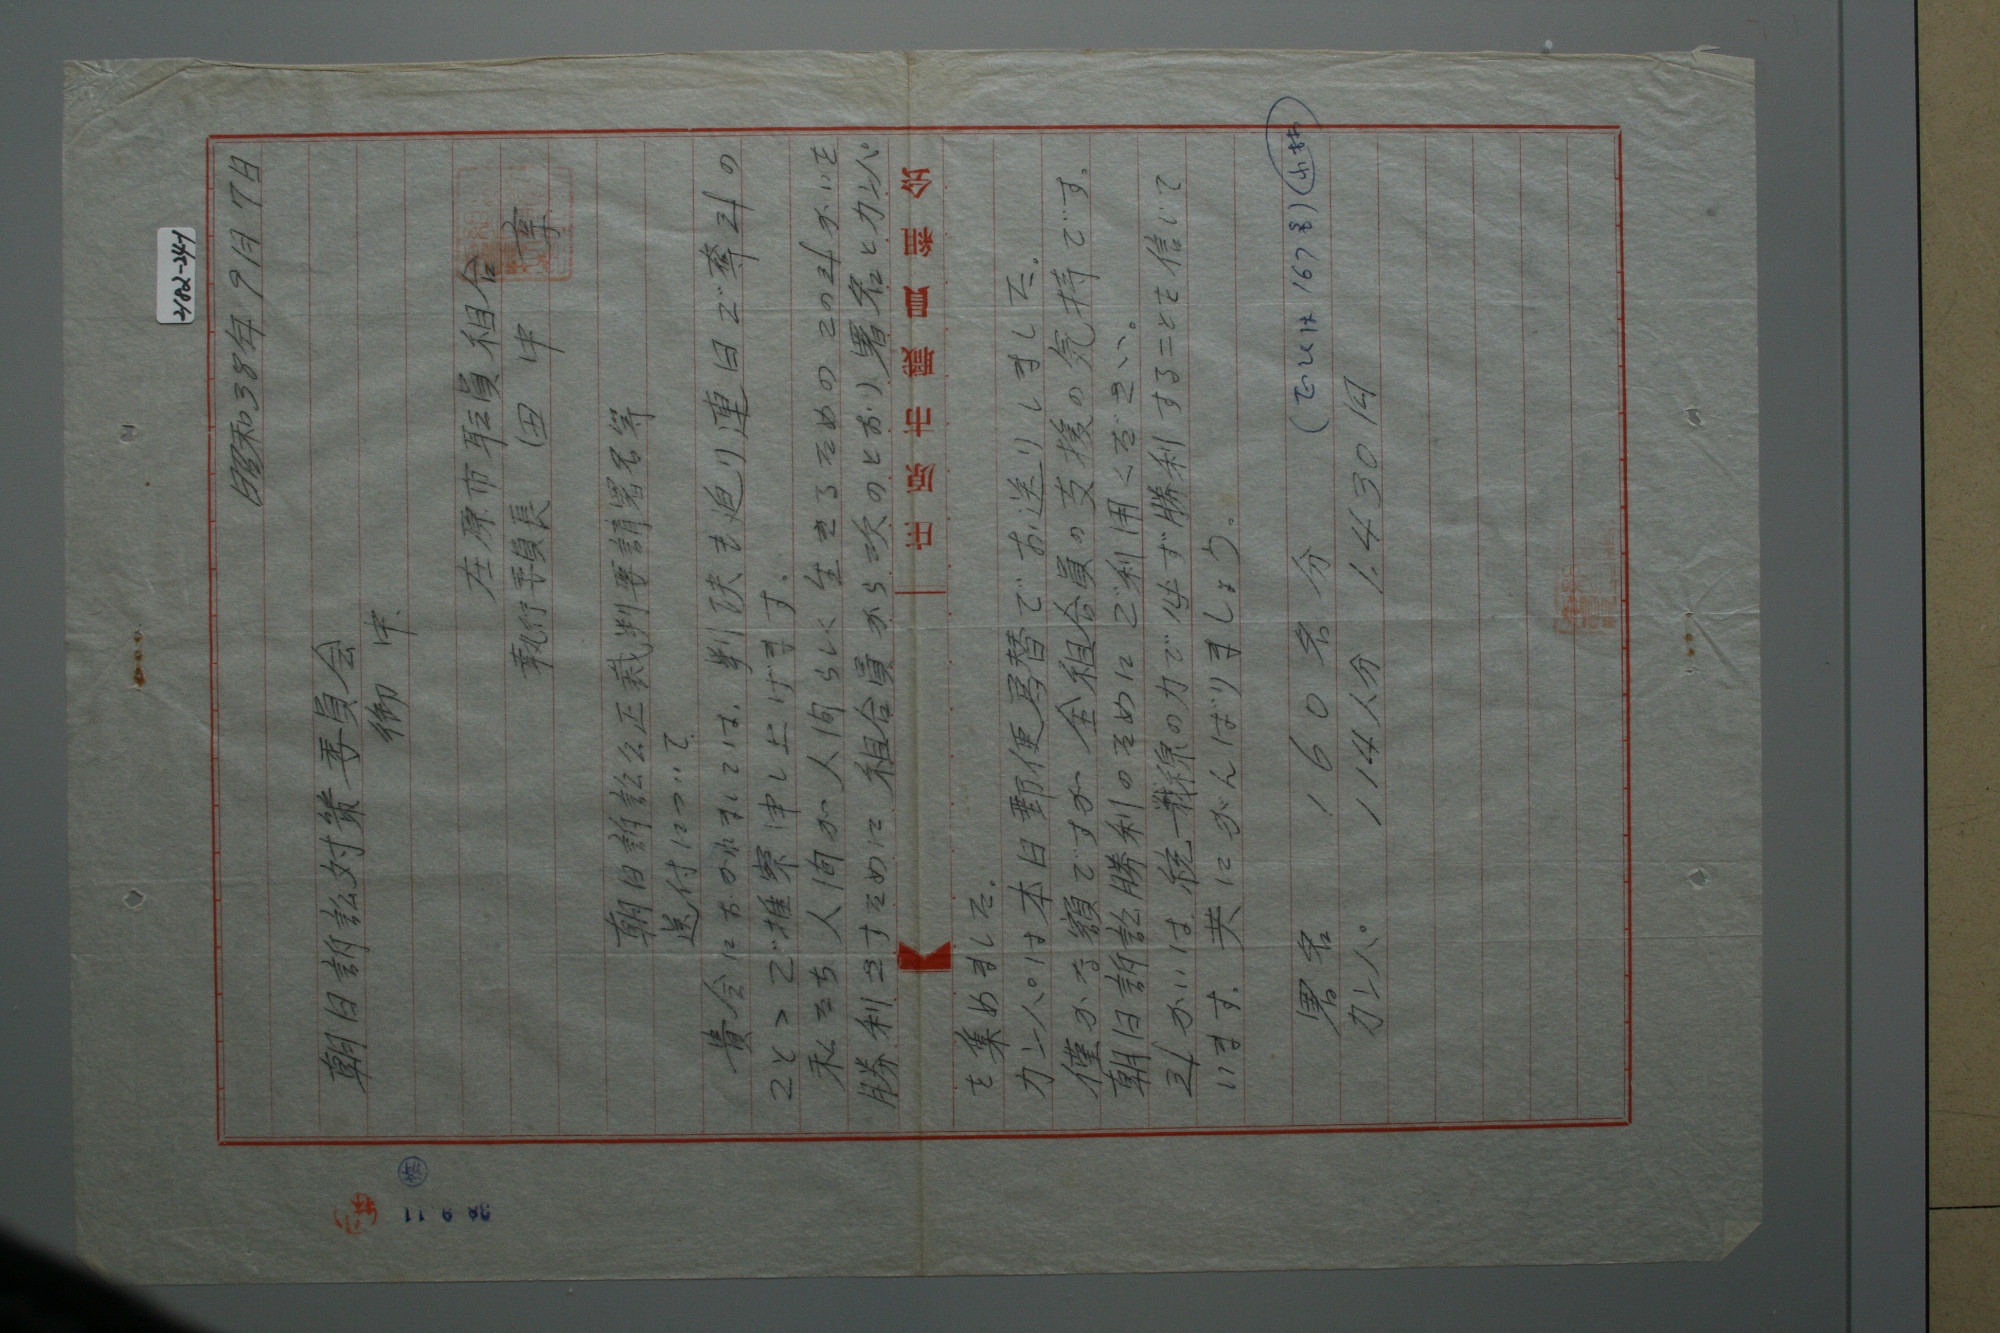 2482-244
昭和38年9月7日
朝日訴訟対策委員会
御中
庄原市职員組合
執行委員長 田中 章
朝日訴訟公正裁判要請署名等
送付について
貴会におかれましては、判決も迫り連日ご奮斗の
こととご推察申し上げます。
私たち人间が人间らしく生きるためのこの斗かいを
勝利さすために組合員から次のとおり署名とカンパ
庄原市職員組合
を集めました。
カンパは本日郵便為替でお送りしました。
僅かな額ですが全組合員の支援の気持です。
朝日訴訟勝利のためにご利用ください。
斗かいは統一戦線の力で必ず勝利することを信じて
います。共にがんばりましょう。
署名 160名分
カンパ 114人分 1.430円
38.9.11